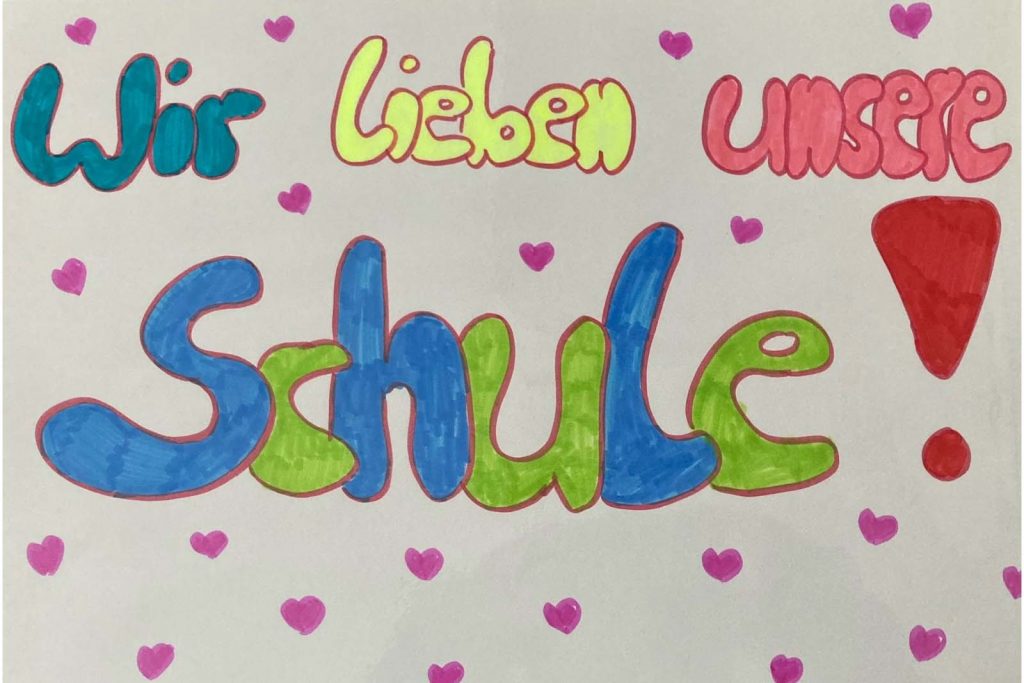 Wir lieben unsere
Schule!